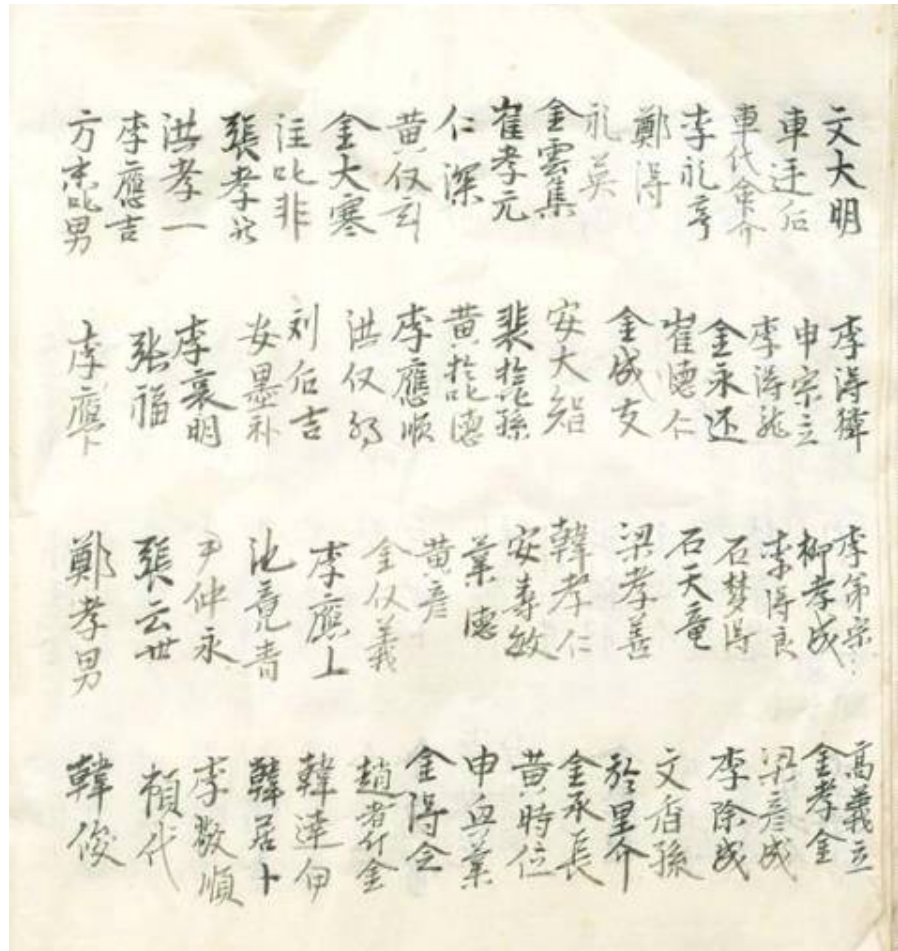 文大明
車迂石
車代金介
李礼亨
鄭得
礼英
金雲集
崔孝元
仁深
黄仅玄
金大寒
注叱非
張孝
洪孝一
李應吉
方 男
李得
申宗立
李得龍
金永还
崔德仁
金成友
安大智
裴於叱孫
黄於叱德
李應順
洪仅
刘石吉
安墨补
李襄明
張福
李應卞
李第宗
柳孝成
李得良
石梦得
石天竜
梁孝善
韓孝仁
安寿敏
葉德
黄彦
金仅義
李應上
池竟青
尹仲永
張云世
鄭孝男
高義立
金孝金
梁彦成
李除成
文香孫
於里介
金永長
黄時位
申血業
金得仝
趙者斤金
韓連伊
韓居卜
李敬順
楨代
韓俊